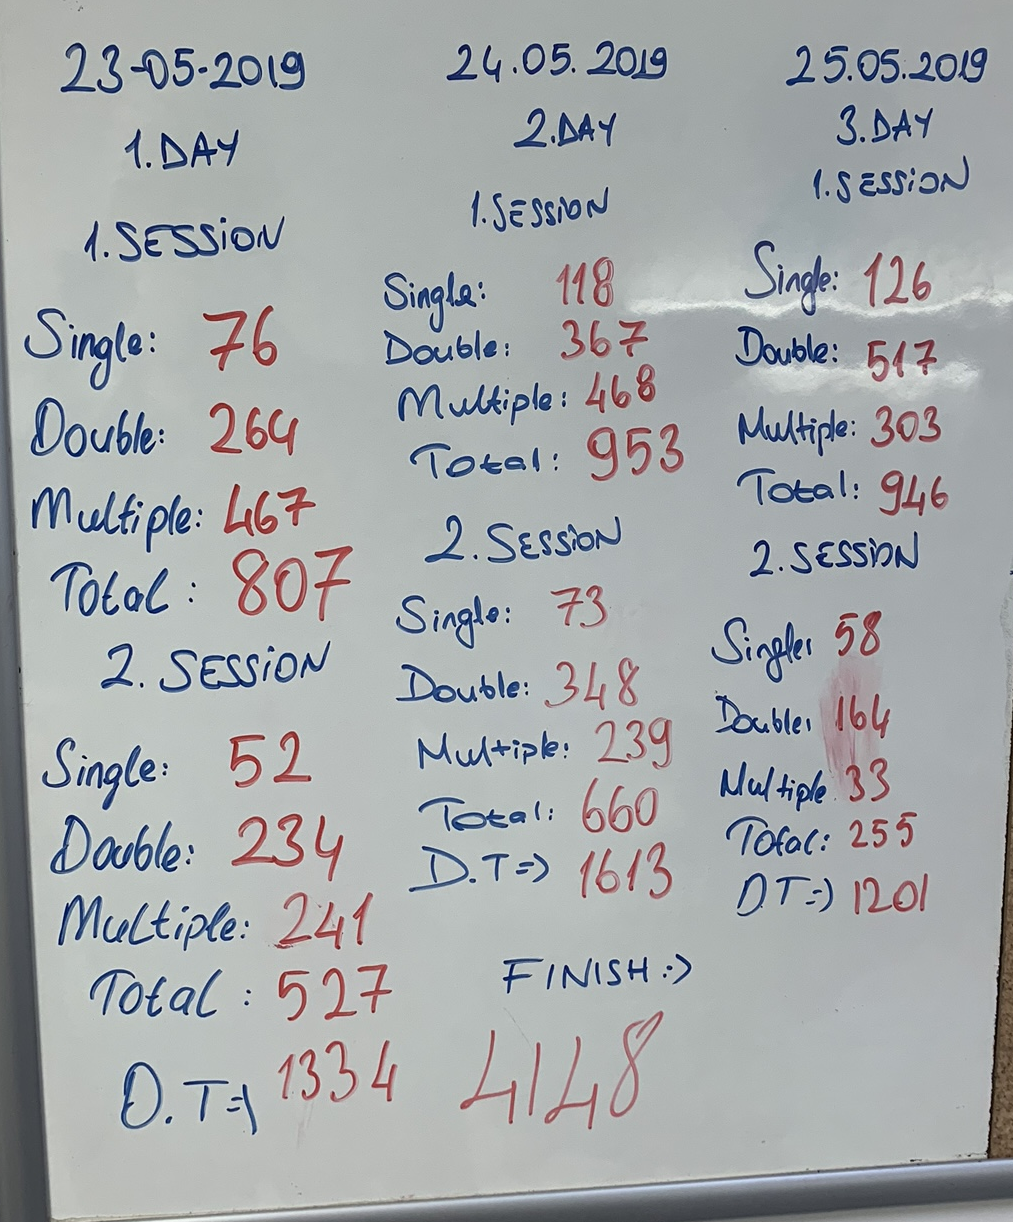 23-05-2019
1.DAY
1.SESSION
Single: 76
Double: 264
Multiple: 467
Total: 807
2. SESSION
Single: 52
Double: 234
Multiple: 241
Total: 527
D.T=) 1334
24.05.2019
2.DAY
1.SESSION
Single: 118
Double: 367
Multiple: 468
Total: 953
2. SESSION
Single: 73
Double: 348
Multiple: 239
Total: 660
D.T=) 1613
25.05.2019
3.DAY
1.SESSION
Single: 126
Double: 517
Multiple: 303
Total: 946
2. SESSION
Single: 58
Double: 164
Multiple 33
Total: 255
D.T=) 1201
FINISH:)
4148